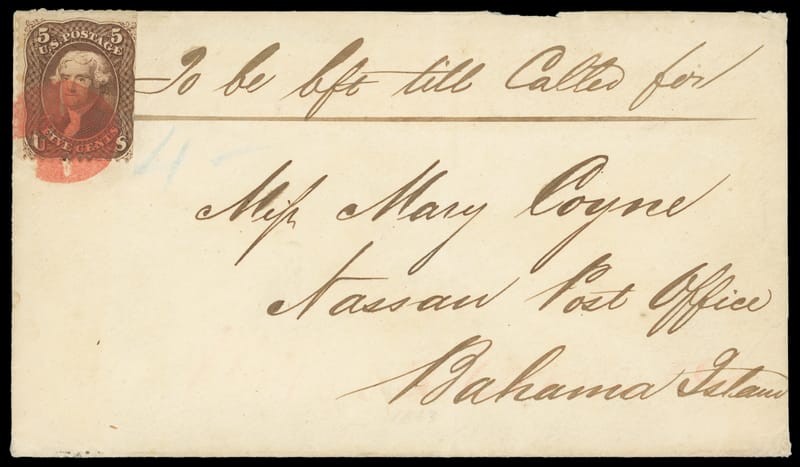 5 5
U.S. POSTAGE
U S
FIVE CENTS
To be lft till Called for
4
Miſs Mary Coyne
Nassau Post Office
Bahama Island